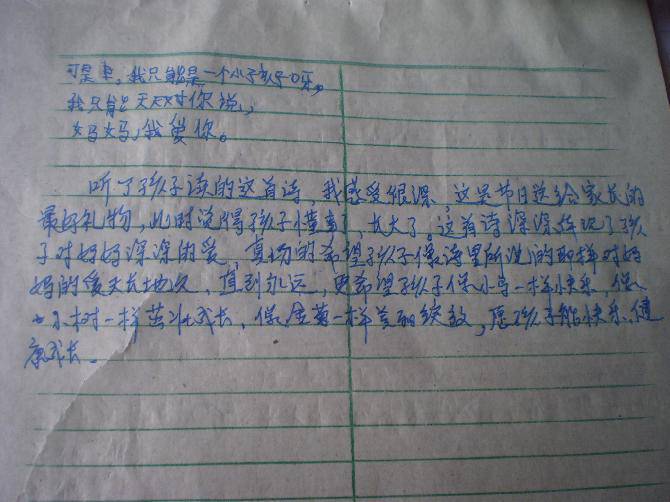 可是,我只能是一个小孩子呀,
我只能天天对你说,
妈妈,我爱你。
听了孩子读的这首诗,我感受很深,这是节日送给家长的
最好礼物,此时觉得孩子懂事了,长大了。这首诗深深体现了孩
子对妈妈深深的爱,真切的希望孩子像诗里所说的那样对妈
妈的爱天长地久,直到永远,更希望孩子像小鸟一样快乐,像
小树一样茁壮成长,像金菊一样美丽绽放,愿孩子能快乐健
康成长。